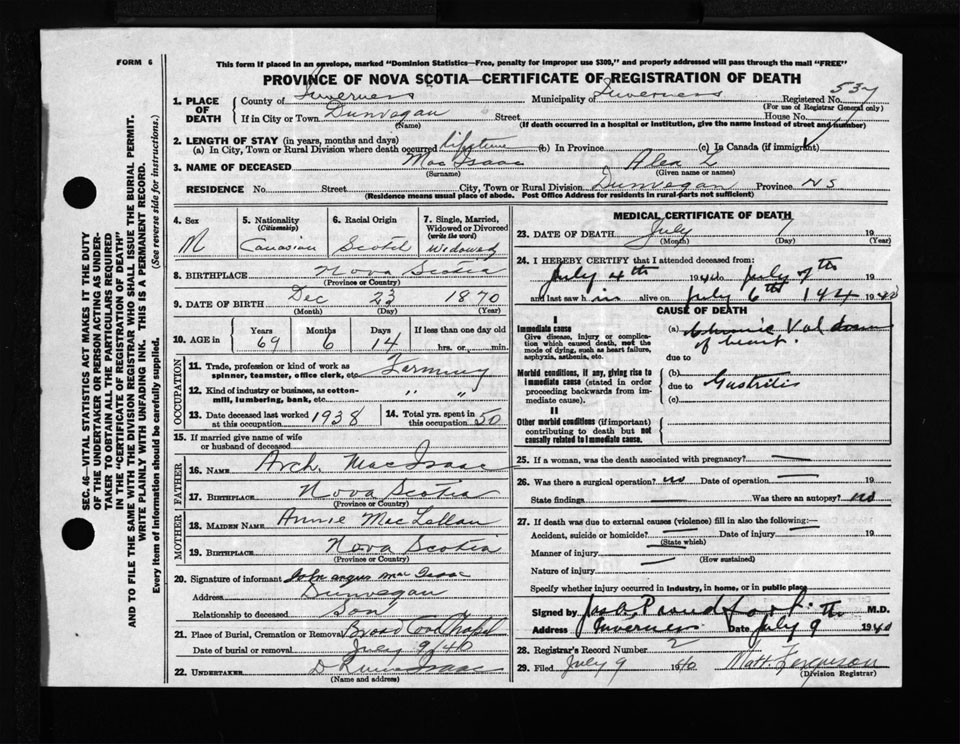 FORM 6
This form if placed in an envelope, marked "Dominion Statistics—Free, penalty for improper use $300," and properly addressed will pass through the mail "FREE"
PROVINCE OF NOVA SCOTIA—CERTIFICATE OF REGISTRATION OF DEATH
SEC. 46—VITAL STATISTICS ACT MAKES IT THE DUTY
OF THE UNDERTAKER OR PERSON ACTING AS UNDER-
TAKER TO OBTAIN ALL THE PARTICULARS REQUIRED
IN THE "CERTIFICATE OF REGISTRATION OF DEATH"
AND TO FILE THE SAME WITH THE DIVISION REGISTRAR WHO SHALL ISSUE THE BURIAL PERMIT.
WRITE PLAINLY WITH UNFADING INK. THIS IS A PERMANENT RECORD.
Every item of Information should be carefully supplied. (See reverse side for instructions.)
1. PLACE OF DEATH County of Inverness Municipality of Inverness Registered No. 537
(For use of Registrar General only)
If in City or Town Dunvegan Street House No.
(Name) (If death occurred in a hospital or institution, give the name instead of street and number)
2. LENGTH OF STAY (in years, months and days)
(a) In City, Town or Rural Division where death occurred lifetime (b) In Province (c) In Canada (if immigrant)
3. NAME OF DECEASED MacIsaac Alex
(Surname) (Given name or names)
RESIDENCE No. Street City, Town or Rural Division Dunvegan Province NS
(Residence means usual place of abode. Post Office Address for residents in rural parts not sufficient)
4. Sex M
5. Nationality (Citizenship) Canadian
6. Racial Origin Scotch
7. Single, Married, Widowed or Divorced (write the word) Widowed
8. BIRTHPLACE Nova Scotia
(Province or Country)
9. DATE OF BIRTH Dec 23 1870
(Month) (Day) (Year)
10. AGE in Years 69 Months 6 Days 14 If less than one day old hrs. or min.
OCCUPATION
11. Trade, profession or kind of work as spinner, teamster, office clerk, etc. Farming
12. Kind of industry or business, as cotton-mill, lumbering, bank, etc. " "
13. Date deceased last worked at this occupation 1938
14. Total yrs. spent in this occupation 50
15. If married give name of wife or husband of deceased
FATHER
16. NAME Arch. MacIsaac
17. BIRTHPLACE Nova Scotia
(Province or Country)
MOTHER
18. MAIDEN NAME Annie MacLellan
19. BIRTHPLACE Nova Scotia
(Province or Country)
20. Signature of informant John Angus MacIsaac
Address Dunvegan
Relationship to deceased Son
21. Place of Burial, Cremation or Removal Broad Cove Chapel
Date of burial or removal July 9/40
22. UNDERTAKER
(Name and address)
MEDICAL CERTIFICATE OF DEATH
23. DATE OF DEATH July 7 19
(Month) (Day) (Year)
24. I HEREBY CERTIFY that I attended deceased from:
July 4th 1940 to July 7th 19
and last saw him alive on July 6th 1940
CAUSE OF DEATH
I
Immediate cause
Give disease, injury or complication which caused death, not the mode of dying, such as heart failure, asphyxia, asthenia, etc.
(a) Chronic of heart.
due to
Morbid conditions, if any, giving rise to immediate cause (stated in order proceeding backwards from immediate cause).
(b)
due to Gastritis
(c)
II
Other morbid conditions (if important) contributing to death but not causally related to immediate cause.
25. If a woman, was the death associated with pregnancy? —
26. Was there a surgical operation? no Date of operation — 19
State findings — Was there an autopsy? no
27. If death was due to external causes (violence) fill in also the following:—
Accident, suicide or homicide? — Date of injury — 19
(State which)
Manner of injury —
(How sustained)
Nature of injury —
Specify whether injury occurred in industry, in home, or in public place
Signed by M.D.
Address Inverness Date July 9 1940
28. Registrar's Record Number 2
29. Filed July 9 1940 Matt. Ferguson
(Division Registrar)